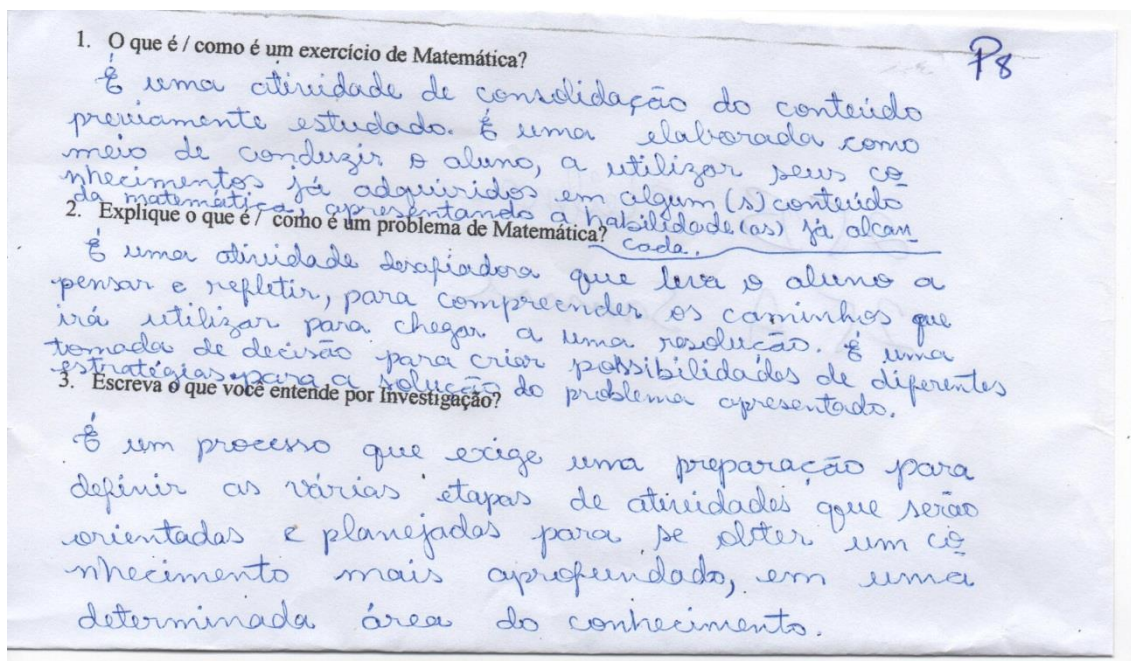 1. O que é / como é um exercício de Matemática?
P8
É uma atividade de consolidação do conteúdo
previamente estudado. É uma elaborada como
meio de conduzir o aluno, a utilizar seus co
nhecimentos já adquiridos em algum (s) conteúdo
da matemática, apresentando a habilidade (as) já alcan
cada.
2. Explique o que é / como é um problema de Matemática?
É uma atividade desafiadora que leva o aluno a
pensar e refletir, para compreender os caminhos que
irá utilizar para chegar a uma resolução. É uma
tomada de decisão para criar possibilidades de diferentes
estratégias para a solução do problema apresentado.
3. Escreva o que você entende por Investigação?
É um processo que exige uma preparação para
definir as várias etapas de atividades que serão
orientadas e planejadas para se obter um co
nhecimento mais aprofundado, em uma
determinada área do conhecimento.